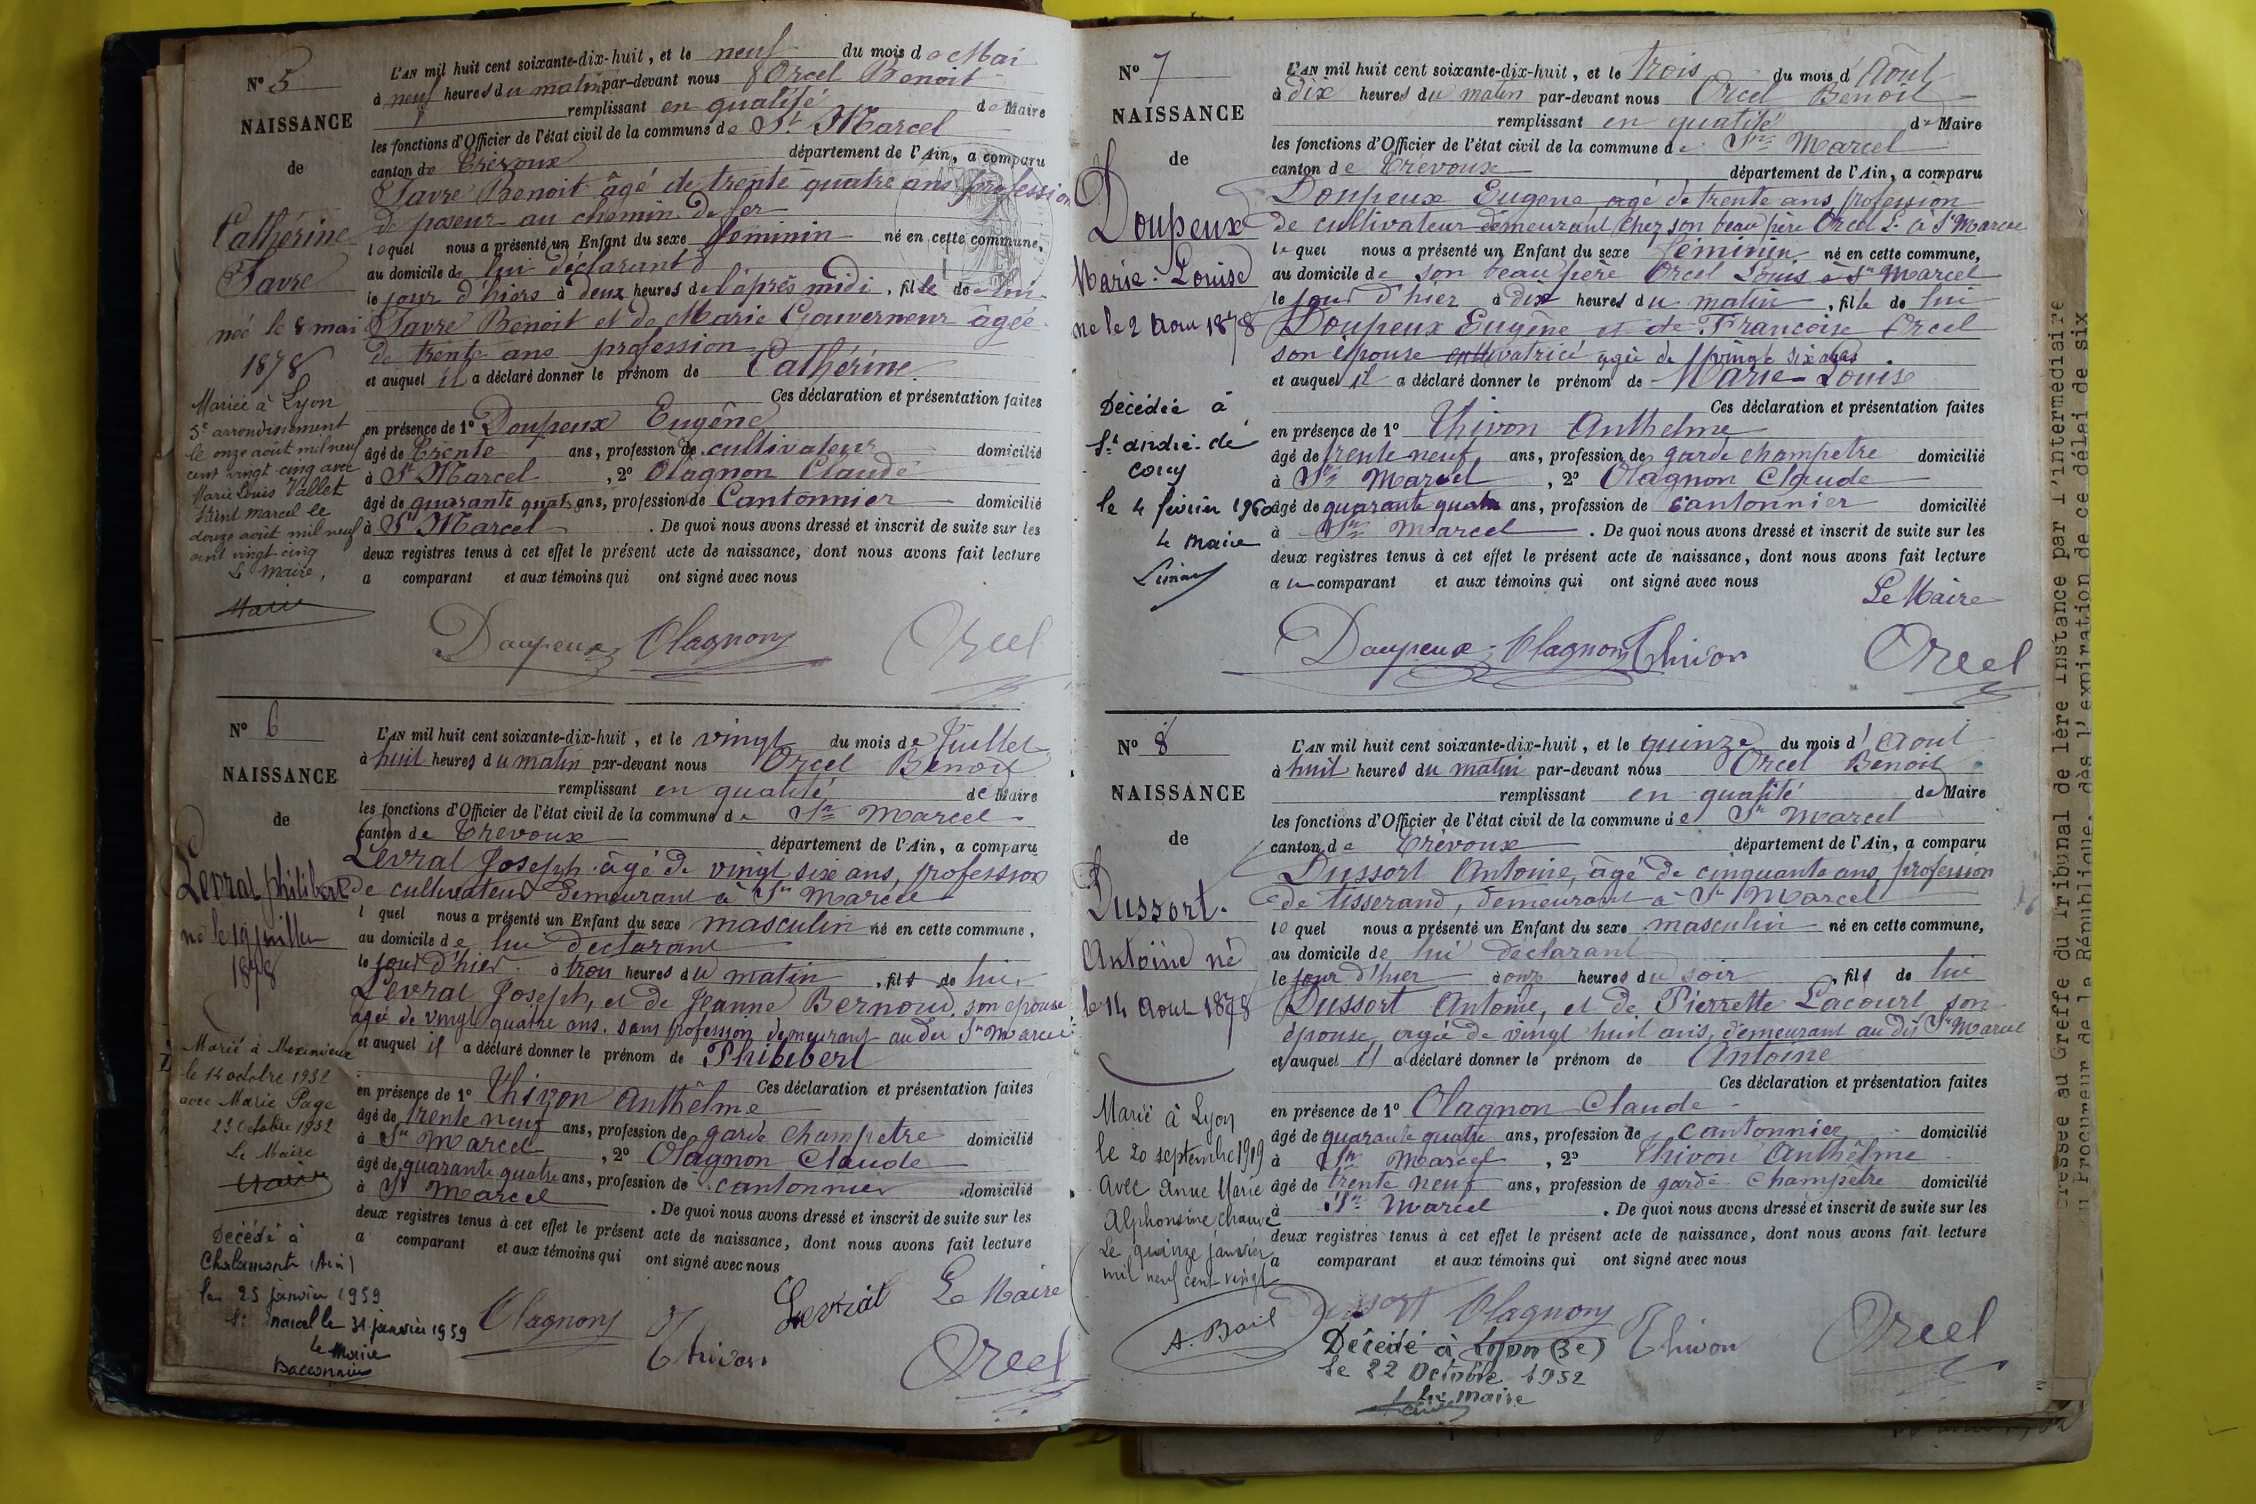 N° 5
NAISSANCE
de
Cathérine
Favre
née le 8 mai
1878
Mariée à Lyon
5e arrondissement
le onze août mil neuf
cent vingt cinq avec
Marie Louis Vallet
Saint Marcel le
douze août mil neuf
cent vingt cinq
Le Maire,
L'AN mil huit cent soixante-dix-huit, et le neuf du mois de Mai
à neuf heures du matin par-devant nous Orcel Benoit
remplissant en qualité de Maire
les fonctions d'Officier de l'état civil de la commune de St Marcel
canton de Trévoux département de l'Ain, a comparu
Favre Benoit âgé de trente quatre ans profession
de poseur au chemin de fer
lequel nous a présenté un Enfant du sexe féminin né en cette commune,
au domicile de lui déclarant
le jour d'hiers à deux heures de l'après midi, fille de lui
Favre Benoit et de Marie Gouverneur âgée
de trente ans profession
et auquel il a déclaré donner le prénom de Cathérine
Ces déclaration et présentation faites
en présence de 1° Doupeux Eugène
âgé de trente ans, profession de cultivateur domicilié
à St Marcel, 2° Olagnon Claude
âgé de quarante quat ans, profession de Cantonnier domicilié
à St Marcel. De quoi nous avons dressé et inscrit de suite sur les
deux registres tenus à cet effet le présent acte de naissance, dont nous avons fait lecture
a comparant et aux témoins qui ont signé avec nous
Doupeux Olagnon Orcel
N° 6
NAISSANCE
de
Levrat Philibert
né le 19 juillet
1878
Marié à Meximieux
le 14 octobre 1932
avec Marie Page
23 Octobre 1932
Le Maire
Décédé à
Chalamont (Ain)
le 25 janvier 1959
St Marcel le 31 janvier 1959
le Maire
L'AN mil huit cent soixante-dix-huit, et le vingt du mois de Juillet
à huit heures du matin par-devant nous Orcel Benoit
remplissant en qualité de Maire
les fonctions d'Officier de l'état civil de la commune de St Marcel
canton de Trévoux département de l'Ain, a comparu
Levrat Joseph âgé de vingt six ans, profession
de cultivateur demeurant à St Marcel
l quel nous a présenté un Enfant du sexe masculin né en cette commune,
au domicile de lui déclarant
le jour d'hier à trois heures du matin, fils de lui
Levrat Joseph, et de Jeanne Bernoud, son épouse
agée de vingt quatre ans, sans profession demeurant au dit St Marcel
et auquel il a déclaré donner le prénom de Philibert
Ces déclaration et présentation faites
en présence de 1° Thivon Anthêlme
âgé de trente neuf ans, profession de garde champetre domicilié
à St Marcel, 2° Olagnon Claude
âgé de quarante quatre ans, profession de cantonnier domicilié
à St Marcel. De quoi nous avons dressé et inscrit de suite sur les
deux registres tenus à cet effet le présent acte de naissance, dont nous avons fait lecture
a comparant et aux témoins qui ont signé avec nous
Olagnon Thivon Levrat Le Maire
Orcel
N° 7
NAISSANCE
de
Doupeux
Marie-Louise
né le 2 Aout 1878
Décédée à
St André-de
Corcy
le 4 février 1960
Le Maire
L'AN mil huit cent soixante-dix-huit, et le trois du mois d'Août
à dix heures du matin par-devant nous Orcel Benoit
remplissant en qualité de Maire
les fonctions d'Officier de l'état civil de la commune de St Marcel
canton de Trévoux département de l'Ain, a comparu
Doupeux Eugene agé de trente ans, profession
de cultivateur demeurant chez son beau père Orcel L. à St Marcel
le quel nous a présenté un Enfant du sexe féminin né en cette commune,
au domicile de son beau père Orcel Louis à St Marcel
le jour d'hier à dix heures du matin, fille de lui
Doupeux Eugène et de Françoise Orcel
son épouse cultivatrice agée de vingt six ans
et auquel il a déclaré donner le prénom de Marie-Louise
Ces déclaration et présentation faites
en présence de 1° Thivon Anthelme
âgé de trente neuf ans, profession de garde champetre domicilié
à St Marcel, 2° Olagnon Claude
âgé de quarante quatre ans, profession de cantonnier domicilié
à St Marcel. De quoi nous avons dressé et inscrit de suite sur les
deux registres tenus à cet effet le présent acte de naissance, dont nous avons fait lecture
a u comparant et aux témoins qui ont signé avec nous
Le Maire
Doupeux Olagnon Thivon Orcel
N° 8
NAISSANCE
de
Dussort
Antoine né
le 14 Aout 1878
Marié à Lyon
le 20 septembre 1919
avec Anne Marie
Alphonsine Chauve
Le quinze janvier
mil neuf cent vingt
A. Bail
L'AN mil huit cent soixante-dix-huit, et le quinze du mois d'Aout
à huit heures du matin par-devant nous Orcel Benoit
remplissant en qualité de Maire
les fonctions d'Officier de l'état civil de la commune de St Marcel
canton de Trévoux département de l'Ain, a comparu
Dussort Antoine, âgé de cinquante ans, profession
de tisserand, demeurant à St Marcel
lequel nous a présenté un Enfant du sexe masculin né en cette commune,
au domicile de lui déclarant
le jour d'hier à onze heures du soir, fils de lui
Dussort Antoine, et de Pierrette Lacourt son
épouse agée de vingt huit ans, demeurant au dit St Marcel
et auquel il a déclaré donner le prénom de Antoine
Ces déclaration et présentation faites
en présence de 1° Olagnon Claude
âgé de quarante quatre ans, profession de cantonnier domicilié
à St Marcel, 2° Thivon Anthêlme
âgé de trente neuf ans, profession de garde Champêtre domicilié
à St Marcel. De quoi nous avons dressé et inscrit de suite sur les
deux registres tenus à cet effet le présent acte de naissance, dont nous avons fait lecture
a comparant et aux témoins qui ont signé avec nous
Dussort Olagnon Thivon Orcel
Décédé à Lyon (3e)
le 22 Octobre 1952
Le Maire
ressée au Greffe du Tribunal de 1ère instance par l'intermédiaire
du Procureur de la République, dès l'expiration de ce délai de six